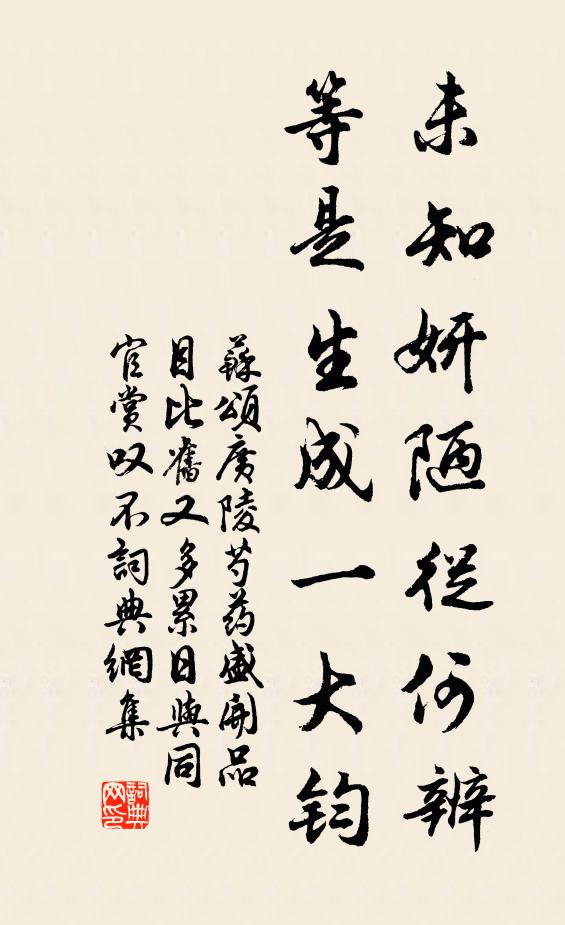 未知妍陋從何辨
等是生成一大鈞
蘇頌廣陵芍药盛開品
目比舊又多累日與同
官賞叹不詞典網集
詞典网印